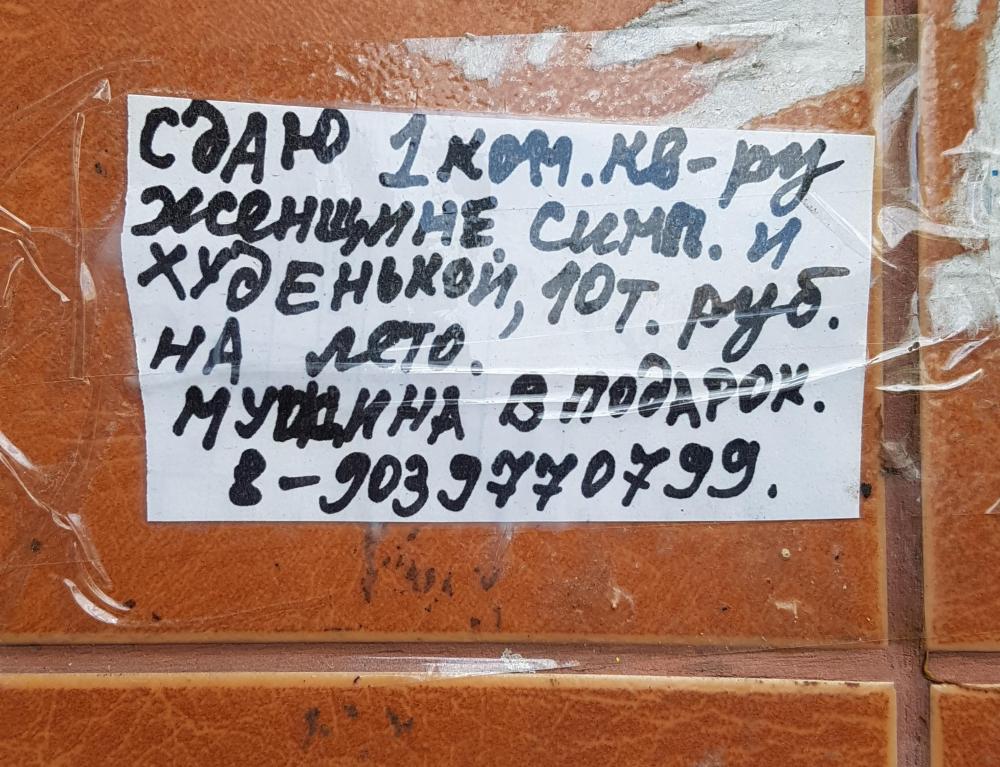 СДАЮ 1 ком. кв-ру
женщине симп. и
худенькой, 10т. руб.
на лето.
мущина в подарок.
8-9039770799.